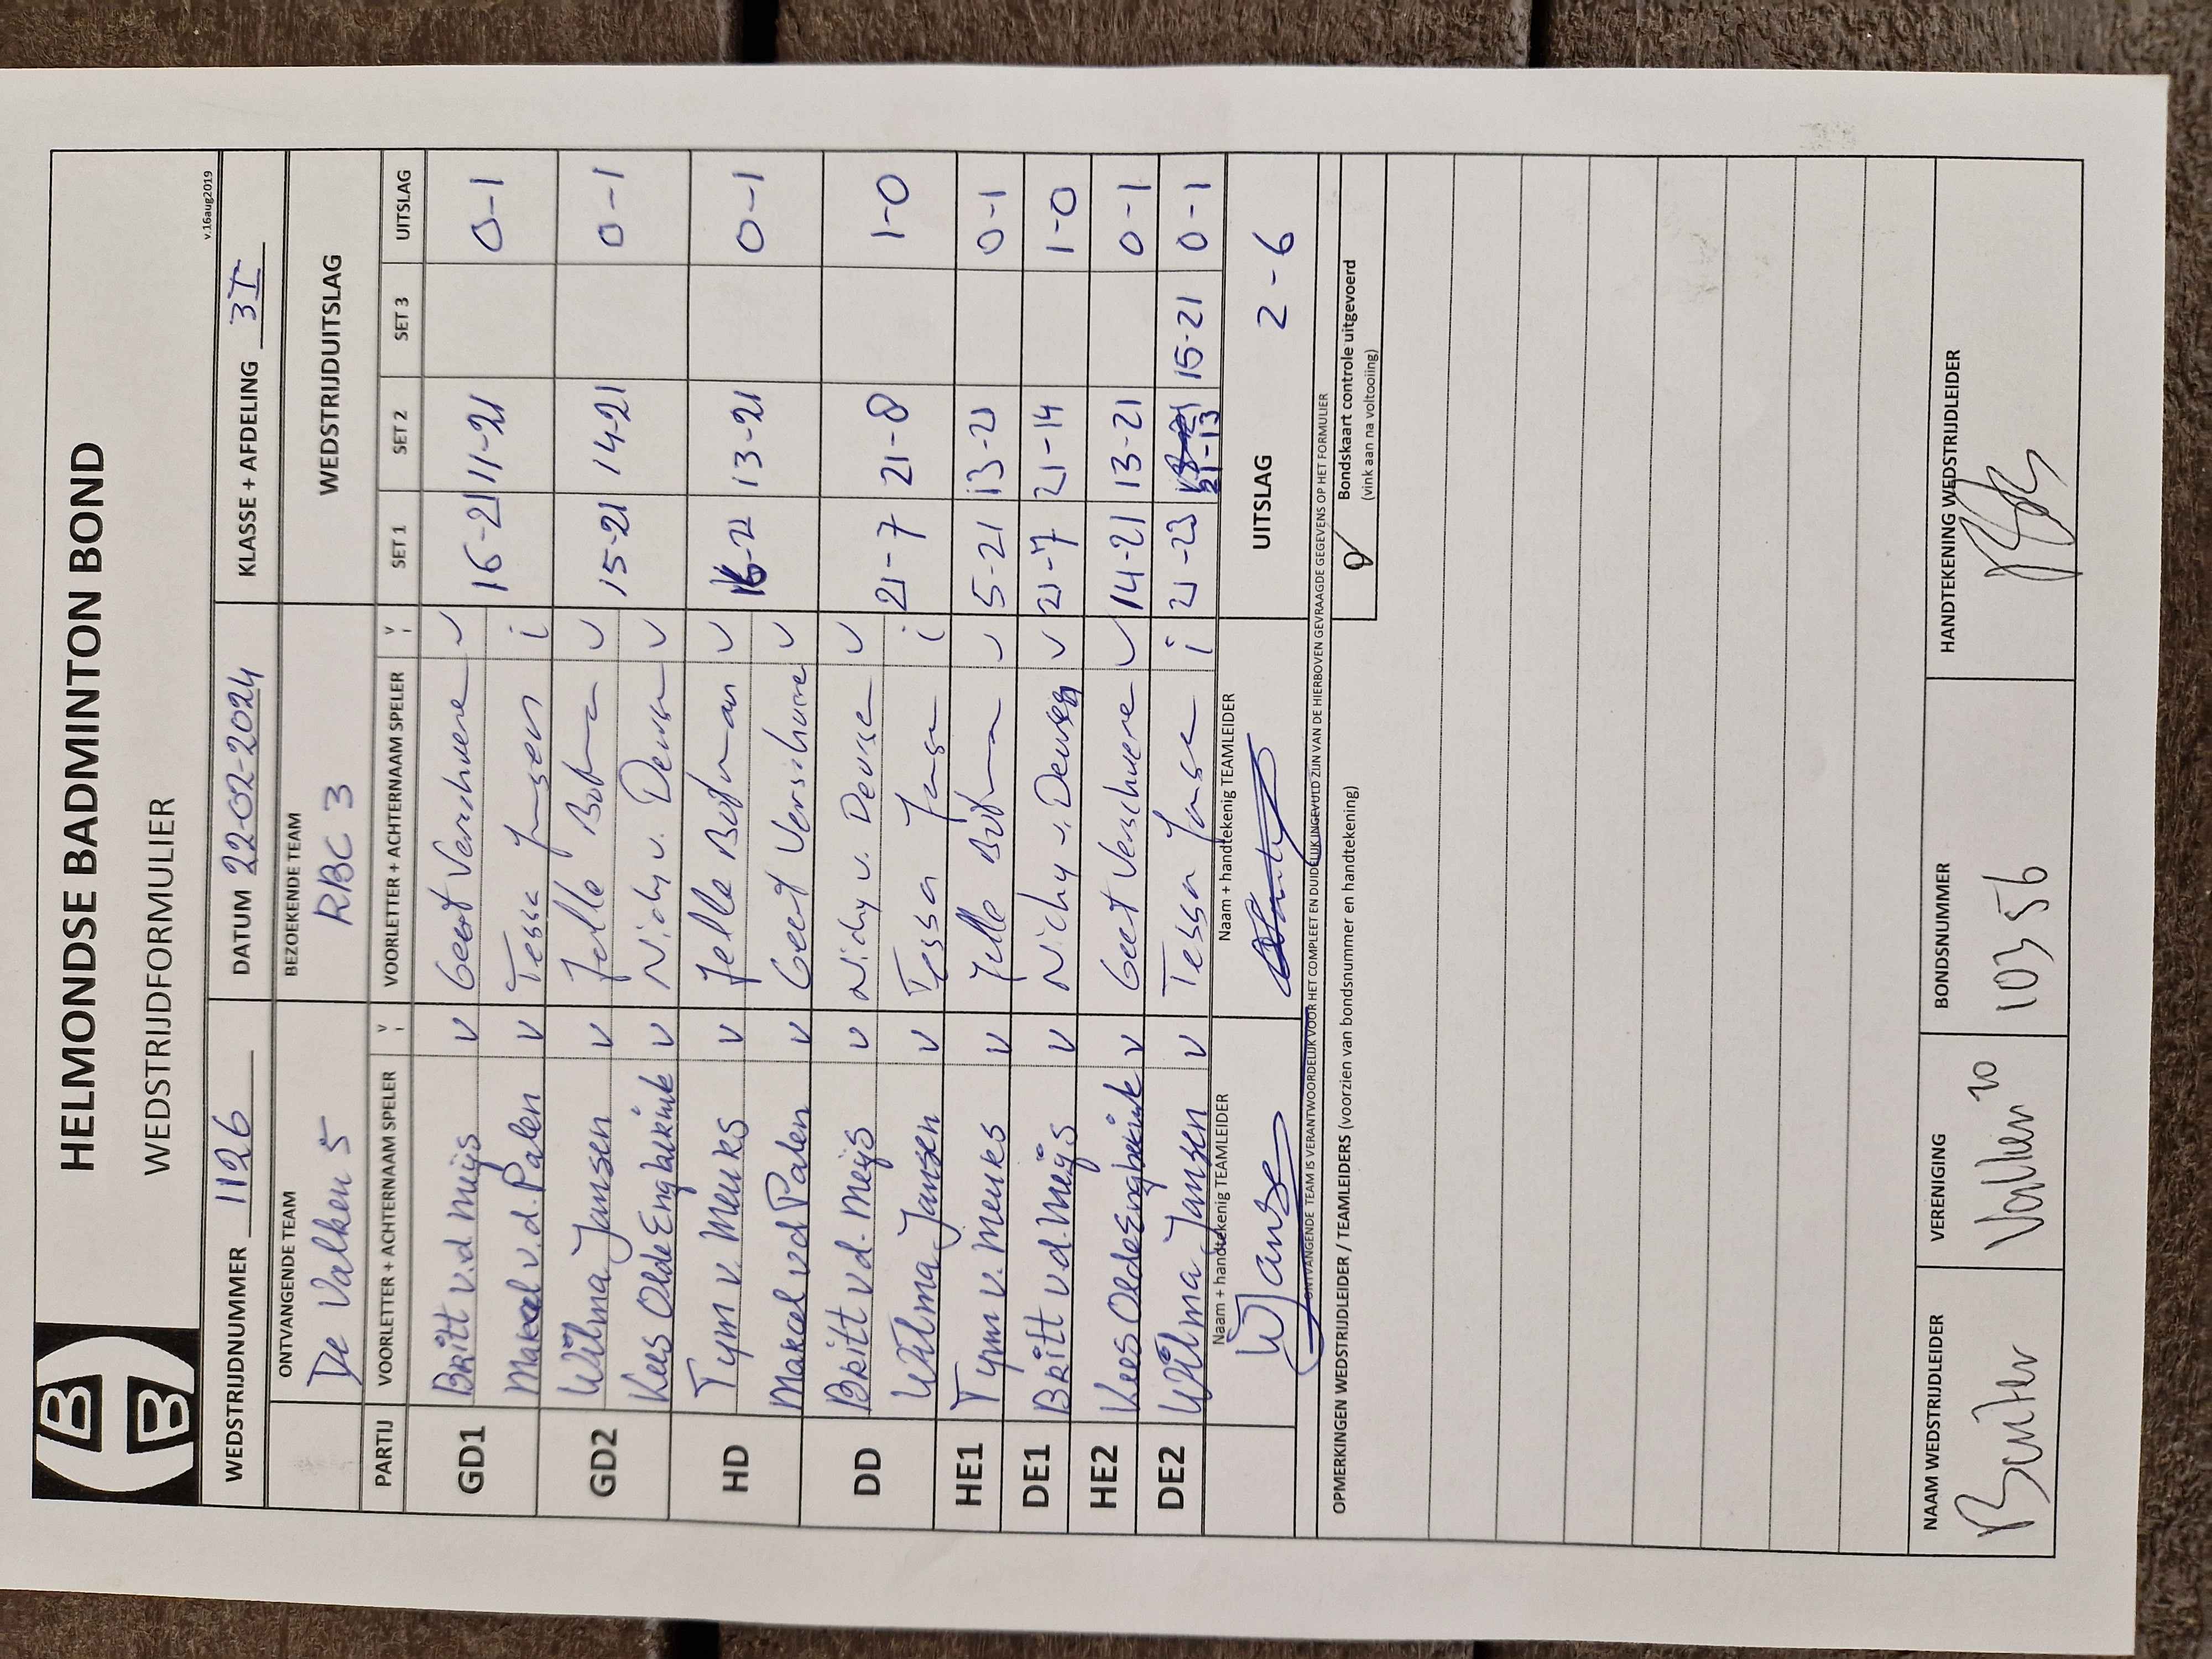 HELMONDSE BADMINTON BOND
WEDSTRIJDFORMULIER
v.16aug2019
WEDSTRIJDNUMMER 1126 DATUM 22-02-2024 KLASSE + AFDELING 3I
ONTVANGENDE TEAM BEZOEKENDE TEAM WEDSTRIJDUITSLAG
De Valken 5 RBC 3
PARTIJ VOORLETTER + ACHTERNAAM SPELER V i VOORLETTER + ACHTERNAAM SPELER V i SET 1 SET 2 SET 3 UITSLAG
GD1 Britt v.d. Meijs v Geert Verschuere v 16-21 11-21 0-1
Marcel v.d. Palen v Tessa Jansen i
GD2 Wilma Jansen v Jelle Botman v 15-21 14-21 0-1
Kees Olde Engberink v Nicky v. Deurse v
HD Tym v. Meuks v Jelle Botman v 16-21 13-21 0-1
Marcel v.d Palen v Geert Verschuere v
DD Britt v.d. Meijs v Nicky v. Deurse v 21-7 21-8 1-0
Wilma Jansen v Tessa Janse i
HE1 Tym v. Meuks v Jelle Botman v 5-21 13-21 0-1
DE1 Britt v.d. Meijs v Nicky v. Deursen v 21-7 21-14 1-0
HE2 Kees Olde Engberink v Geert Verschuere v 14-21 13-21 0-1
DE2 Wilma Jansen v Tessa Janse i 21-23 21-13 15-21 0-1
Naam + handtekenig TEAMLEIDER Naam + handtekenig TEAMLEIDER UITSLAG 2-6
WJanse
ONTVANGENDE TEAM IS VERANTWOORDELIJK VOOR HET COMPLEET EN DUIDELIJK INGEVULD ZIJN VAN DE HIERBOVEN GEVRAAGDE GEGEVENS OP HET FORMULIER
OPMERKINGEN WEDSTRIJDLEIDER / TEAMLEIDERS (voorzien van bondsnummer en handtekening)
Bondskaart controle uitgevoerd
(vink aan na voltooiing)
NAAM WEDSTRIJDLEIDER VERENIGING BONDSNUMMER HANDTEKENING WEDSTRIJDLEIDER
Benter Valken 10356